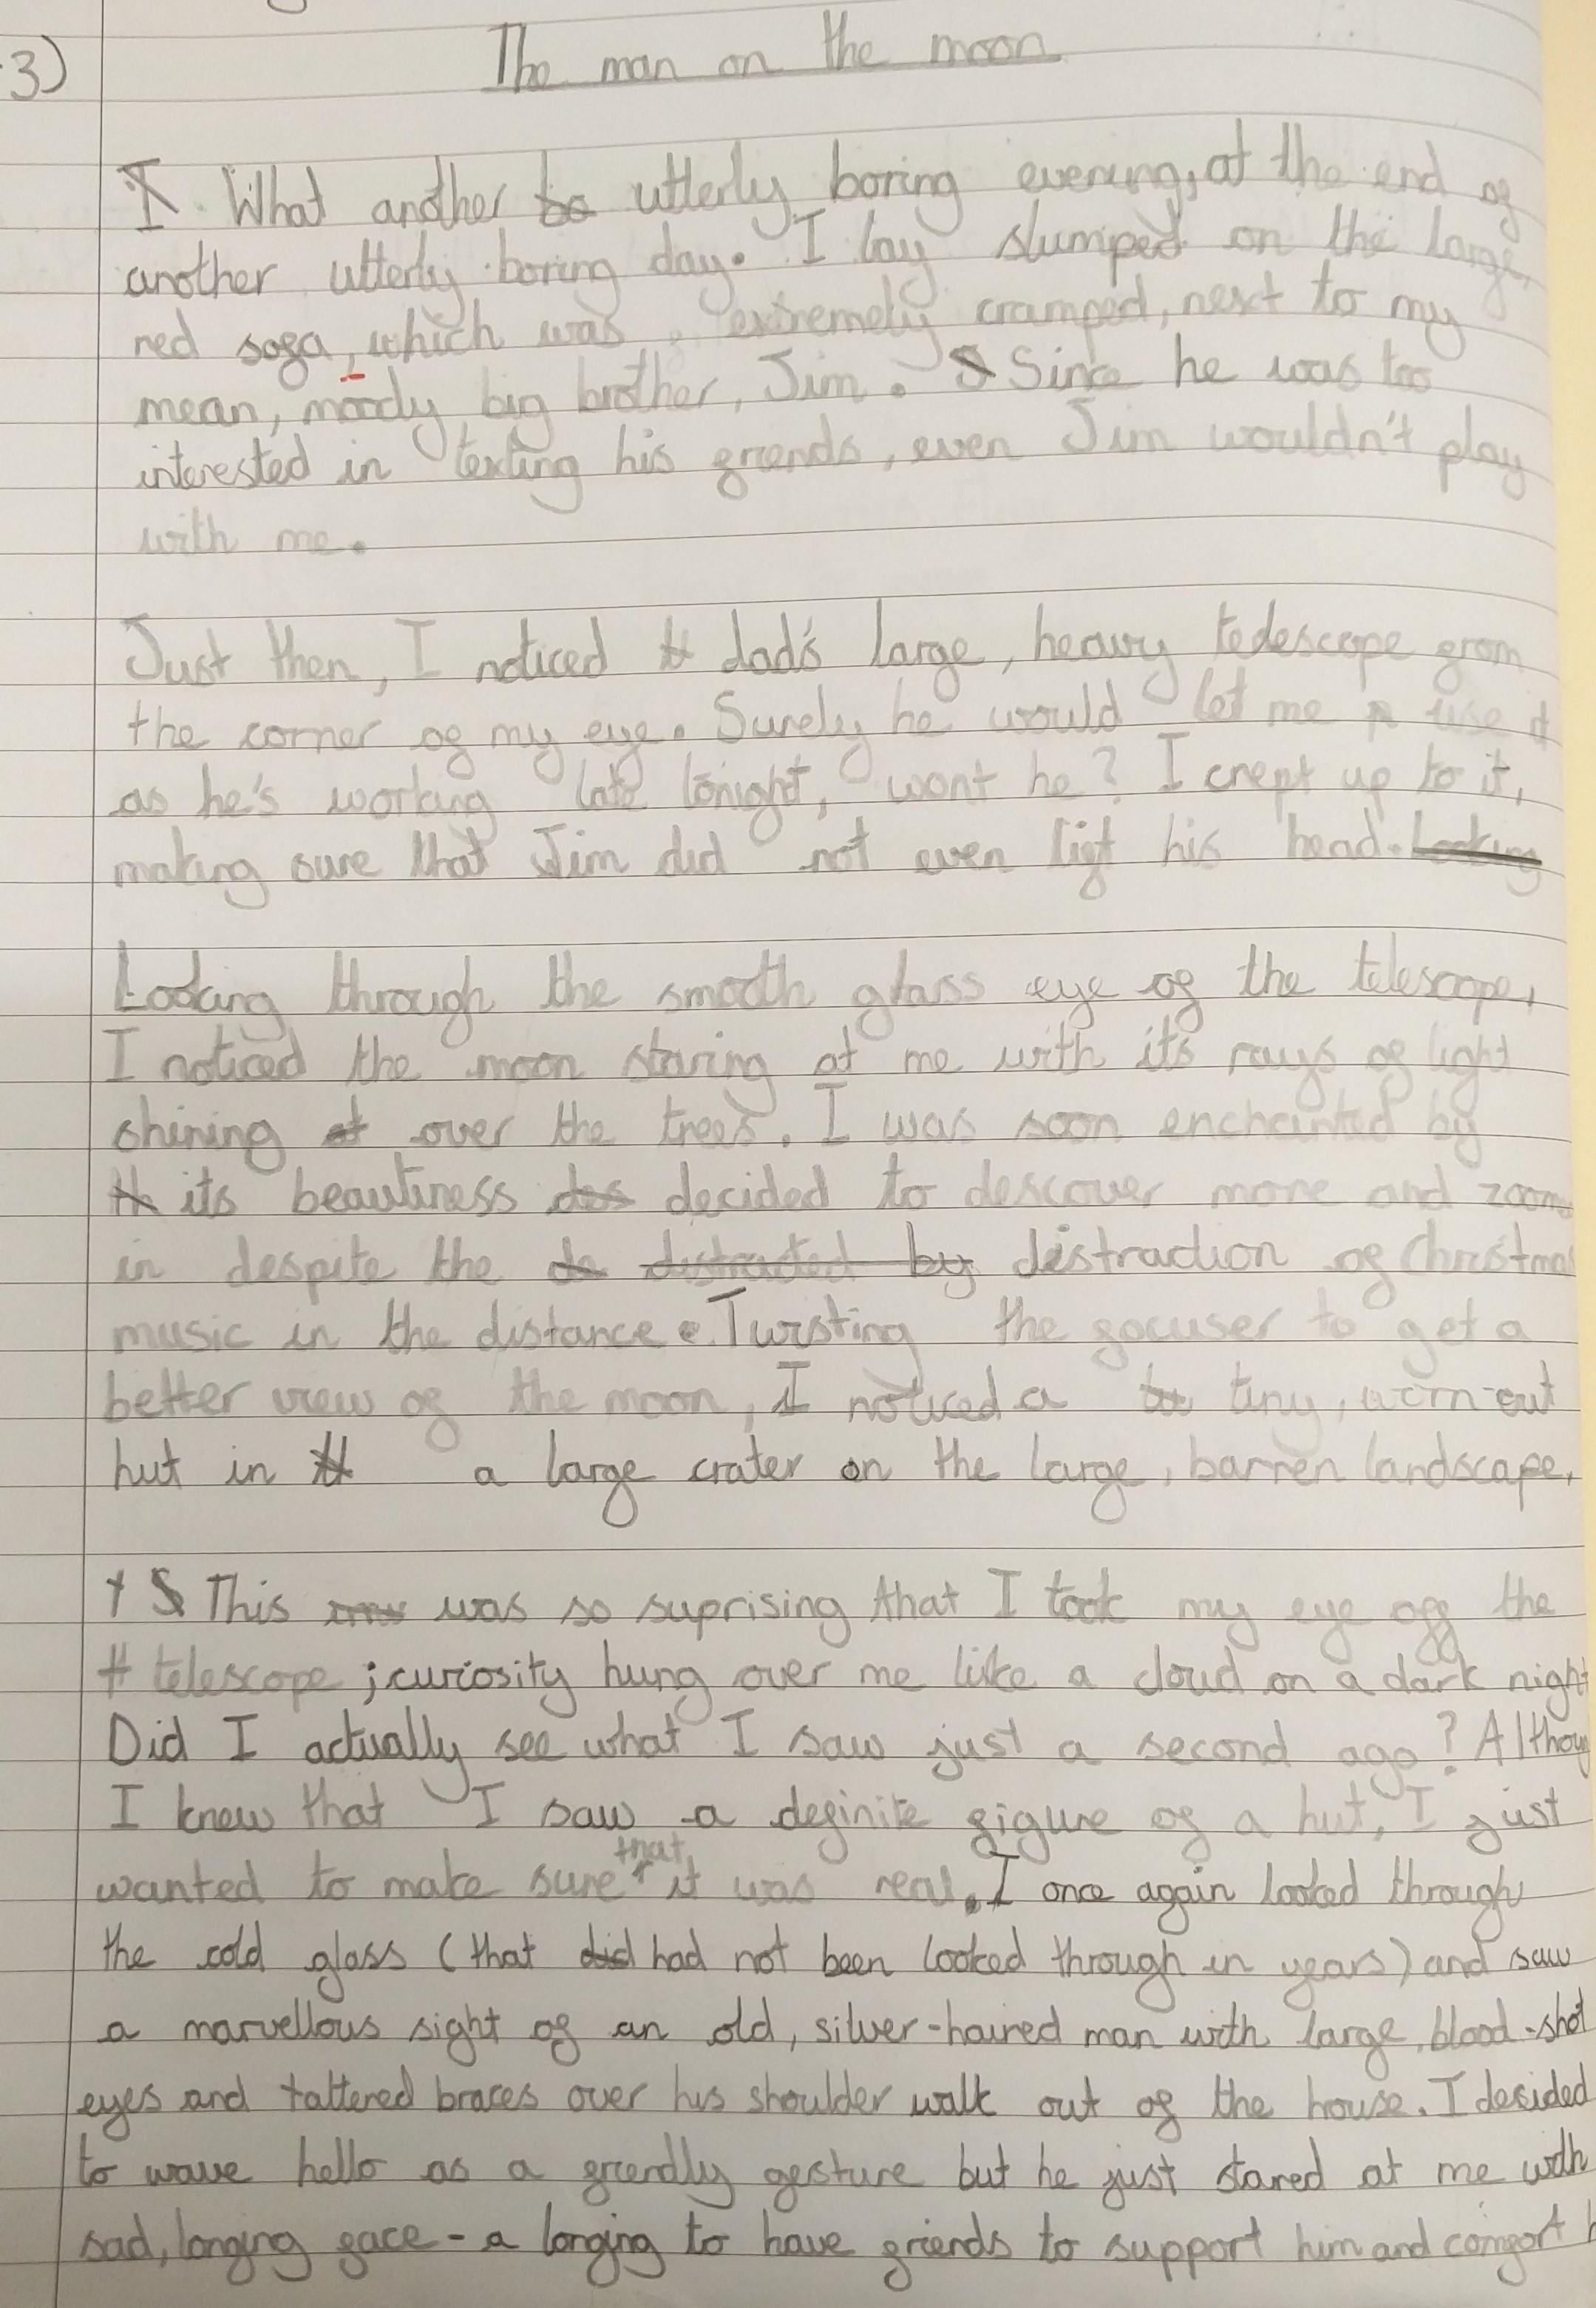 3) The man on the moon
I What another bo utterly boring evening, at the end of
another utterly boring day. I lay slumped on the large,
red sofa, which was extremely cramped, next to my
mean, moody big brother, Jim. S Since he was too
interested in texting his friends, even Jim wouldn't play
with me.
Just then, I noticed tt dad's large, heavy tedescope from
the corner of my eye. Surely he would let me use it
as he's working late tonight, wont he? I crept up to it,
making sure that Jim did not even lift his head. Looking
Looking through the smooth glass eye of the telescope,
I noticed the moon staring at me with its rays of light
shining at over the trees. I was soon enchanted by
th its beautiness des decided to descover more and zoom
in despite the de distracted by distraction of Christmas
music in the distance. Twisting the focuser to get a
better view of the moon, I noticed a tiny, worn-out
hut in tt a large crater on the large, barren landscape.
t S This was so suprising that I took my eye off the
tt telescope ; curiosity hung over me like a cloud on a dark night
Did I actually see what I saw just a second ago? Althoug
I knew that I saw a definite figure of a hut, I just
wanted to make sure that it was real. I once again looked through
the cold glass (that did had not been looked through in years) and saw
a marvellous sight of an old, silver-haired man with large, blood-shot
eyes and tattered braces over his shoulder walk out of the house. I desided
to wave hello as a friendly gesture but he just stared at me with
sad, longing face - a longing to have friends to support him and comfort